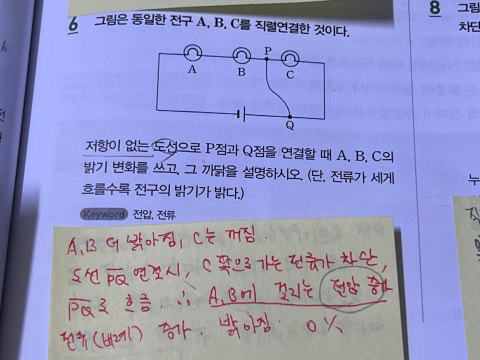 6 그림은 동일한 전구 A, B, C를 직렬연결한 것이다.
P
A B C
Q
저항이 없는 도선으로 P점과 Q점을 연결할 때 A, B, C의
밝기 변화를 쓰고, 그 까닭을 설명하시오. (단, 전류가 세게
흐를수록 전구의 밝기가 밝다.)
Keyword 전압, 전류
A, B 더 밝아짐, C는 꺼짐.
도선 PQ 연결시, C 쪽으로 가는 전류가 차단,
PQ로 흐름. ∴ A, B에 걸리는 전압 증가
전류(벡터) 증가. 밝아짐
8 그림
차단
누